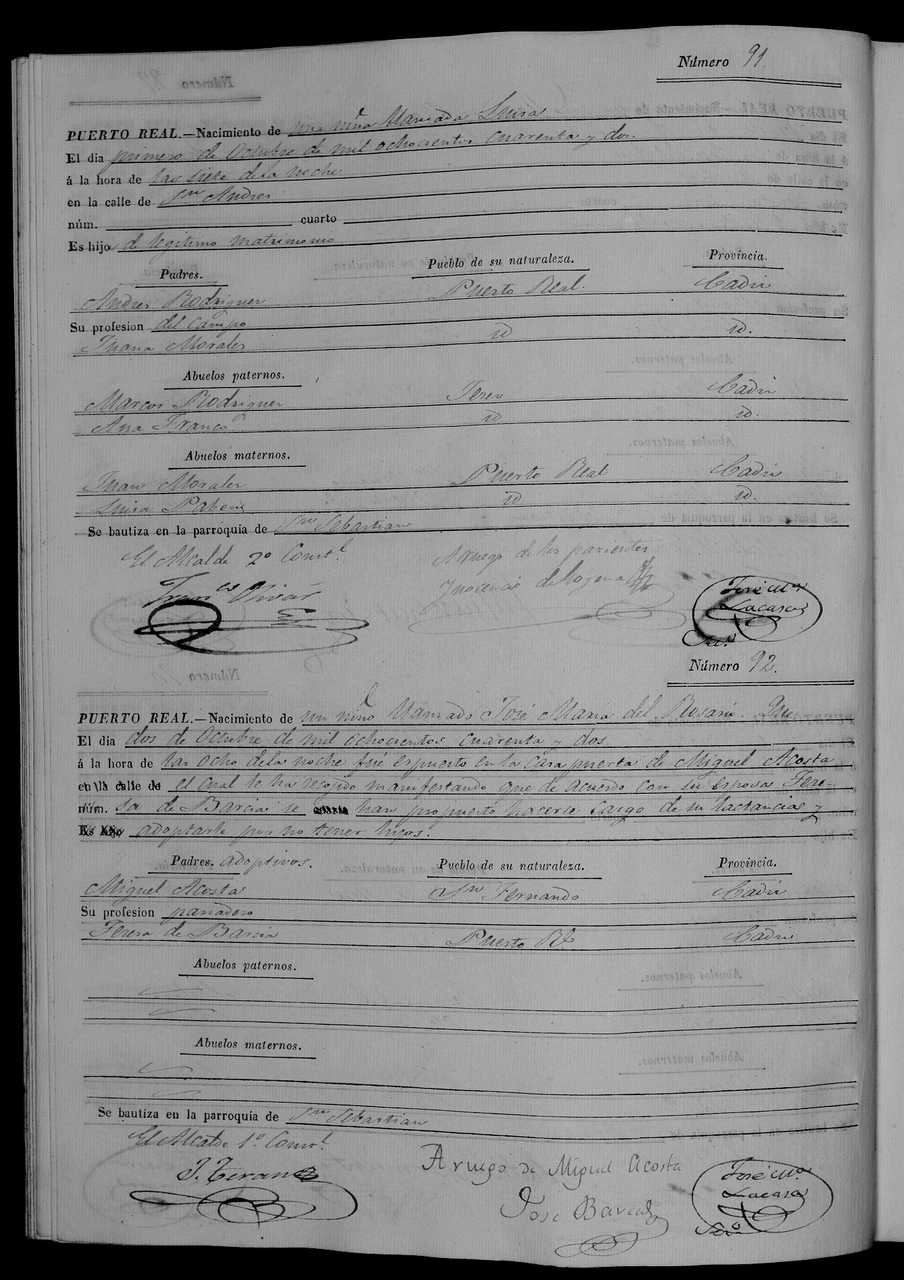 Número 91.
PUERTO REAL.—Nacimiento de una niña llamada Luisa
El dia primero de Octubre de mil ochocientos cuarenta y dos
á la hora de las siete de la noche
en la calle de Sn. Andres
núm. cuarto
Es hijo de legitimo matrimonio
Padres. Pueblo de su naturaleza. Provincia.
Andres Rodriguez Puerto Real Cadiz
Su profesion del Campo
Juana Morales id id.
Abuelos paternos.
Marcos Rodriguez Jerez Cadiz
Ana Franco id id.
Abuelos maternos.
Juan Morales Puerto Real Cadiz
Luisa id id.
Se bautiza en la parroquia de Sn. Sebastian
El Alcalde 2º Constl. A ruego de los parientes
José Ma.
Lacasa
Número 92.
PUERTO REAL.—Nacimiento de un niño llamado José Maria del Rosario. Que
El dia dos de Octubre de mil ochocientos cuarenta y dos
á la hora de las ocho de la noche fue expuesto en la casa puerta de Miguel Acosta
en la calle de el cual le ha recojido manifestando que de acuerdo con su esposa Tere-
núm. sa de Barcia se han propuesto hacerse cargo de su lactancia y
Es hijo adoptarle por no tener hijos.
Padres. adoptivos. Pueblo de su naturaleza. Provincia.
Miguel Acosta Sn. Fernando Cadiz
Su profesion panadero
Teresa de Barcia Puerto Rl. Cadiz
Abuelos paternos.
Abuelos maternos.
Se bautiza en la parroquia de Sn. Sebastian
El Alcalde 1º Constl.
J. Teran A ruego de Miguel Acosta José Ma.
José Barcia Lacasa
Serº